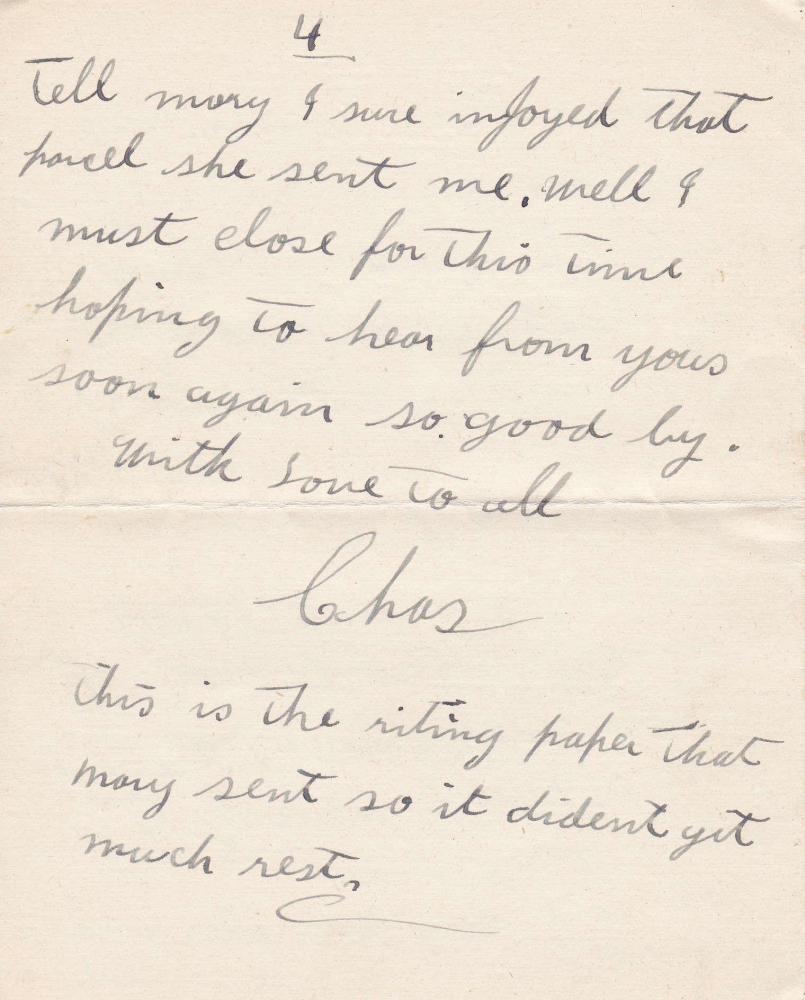 4
Tell mary I sure injoyed that
parcel she sent me. well I
must close for this time
hoping to hear from yous
soon again so good by.
With love to all
Chas
this is the riting paper that
mary sent so it dident git
much rest.